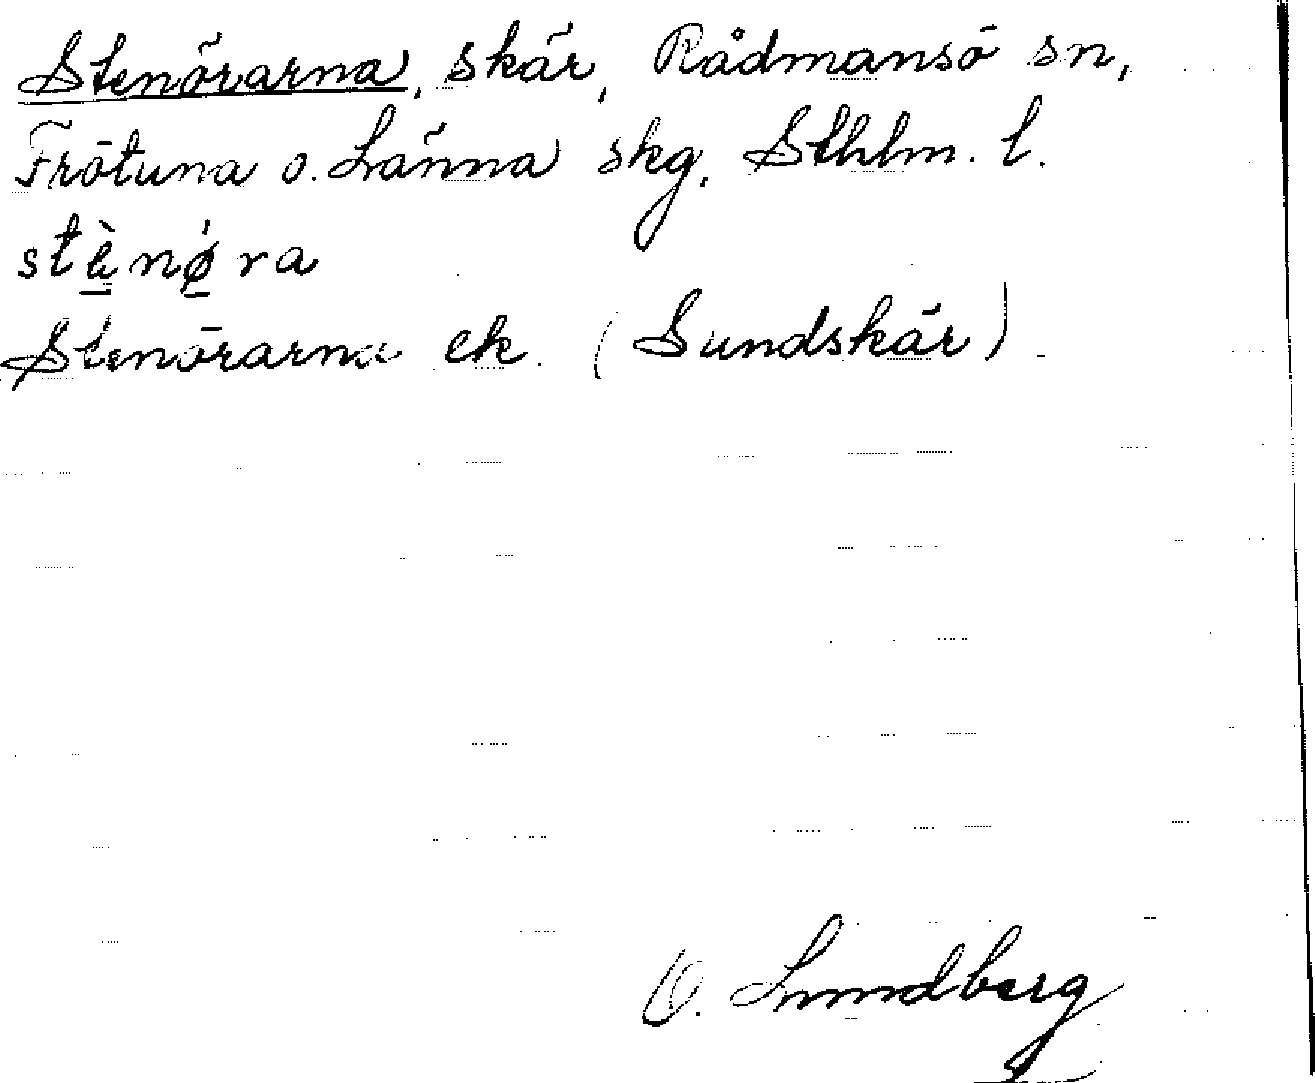 Stenörarna, skär, Rådmansö sn,
Frötuna o. Länna skg, Sthlm. l.
stè̱nǿ̱ra
Stenörarna ek. (Sundskär)
O. Lundberg